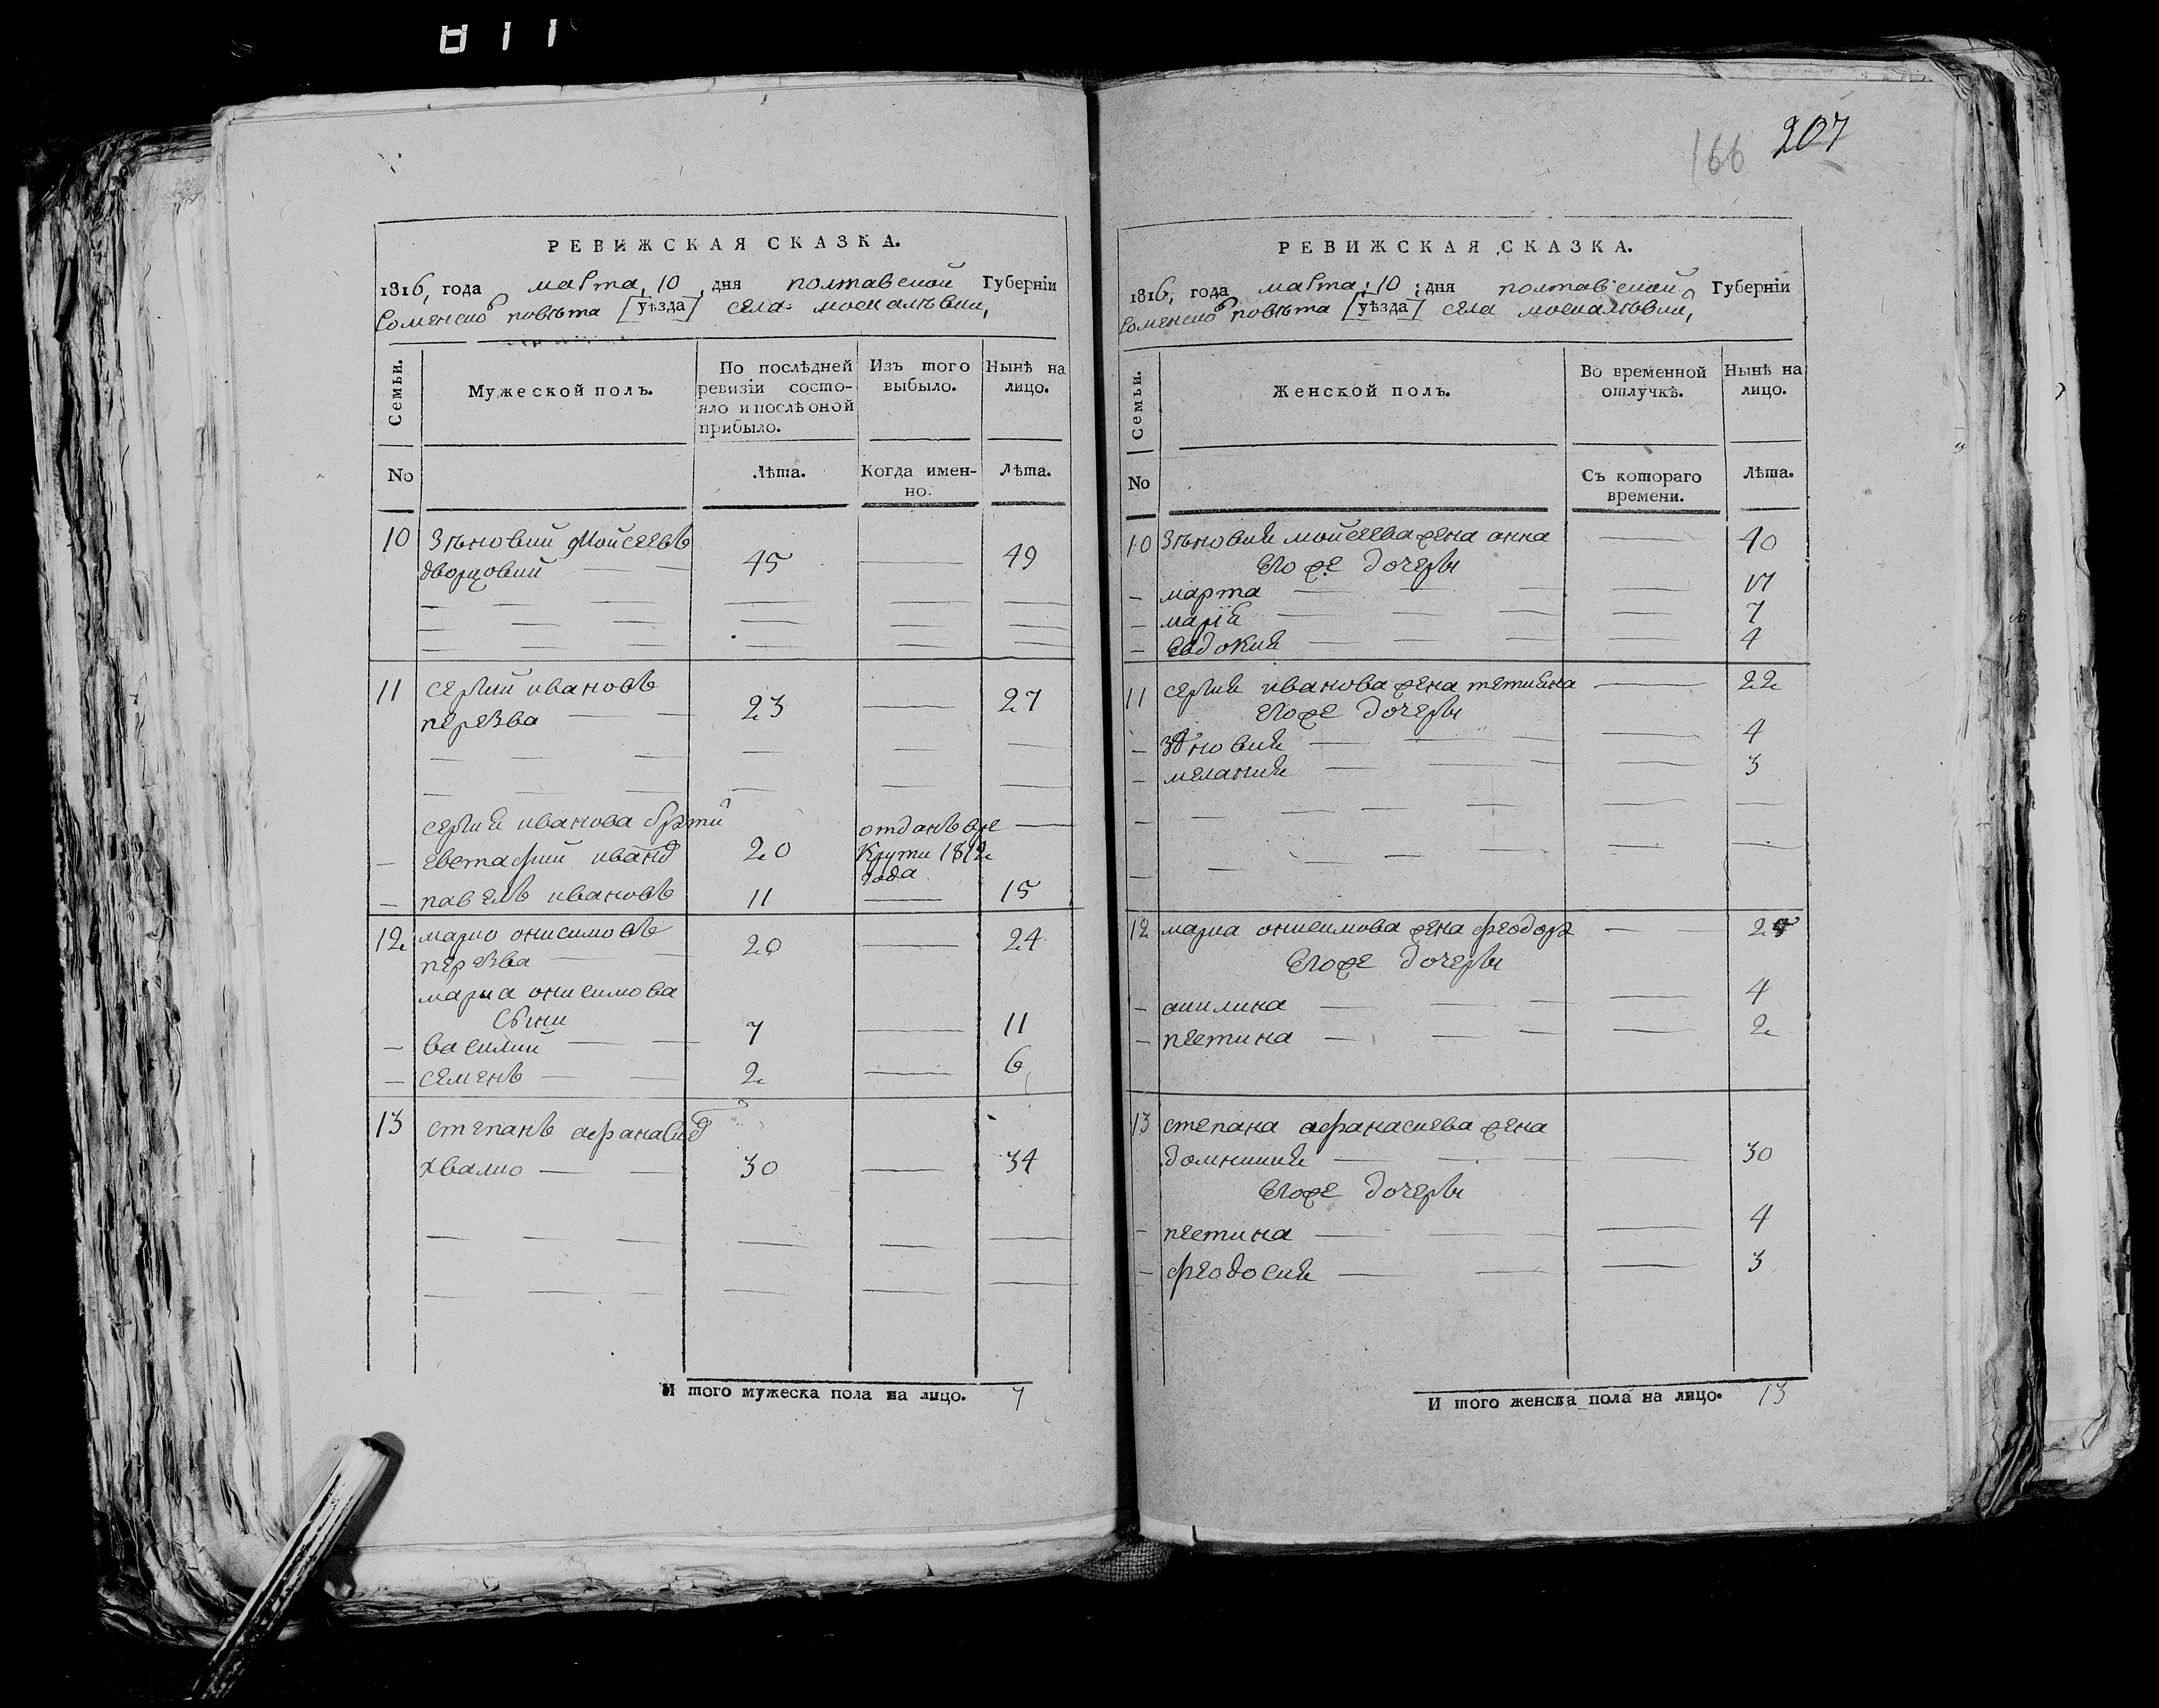 811
166 207
РЕВИЖСКАЯ СКАЗКА.
1816, года марта, 10 дня полтавской Губерніи
роменско повѣта [уѣзда] села москалѣвки,
Семьи.
Мужеской полъ.
По послѣдней ревизіи состо-
яло и послѣ оной
прибыло.
Изъ того
выбыло.
Нынѣ на
лицо.
No
Лѣта.
Когда имен-
но.
Лѣта.
10 Зѣновий Мойсеевъ
дворцовий 45 49
11 сергий ивановъ
перезва 23 27
сергия иванова братия
евстафий иванов 20 отданъ в ре
крути 1812
года
павелъ ивановъ 11 15
12 марко онисимовъ
перезва 20 24
марка онисимова
сыни
василий 7 11
семенъ 2 6
13 степанъ афанасиев
хвалко 30 34
И того мужеска пола на лицо. 7
РЕВИЖСКАЯ СКАЗКА.
1816, года марта; 10 ; дня полтавской Губерніи
роменско повѣта [уѣзда] села москалѣвки,
Семьи.
Женской полъ.
Во временной
отлучкѣ.
Нынѣ на
лицо.
No
Съ котораго
времени.
Лѣта.
10 Зѣновия мойсеева жена анна 40
его же дочеры
марта 17
марія 7
евдокия 4
11 сергия иванова жена тетияна 22
его же дочеры
зѣновия 4
мелания 3
12 марка онисимова жена феодора
его же дочеры
акилина 4
пестина 2
13 степана афанасиева жена
домникия 30
его же дочеры
пестина 4
феодосия 3
И того женска пола на лицо. 13